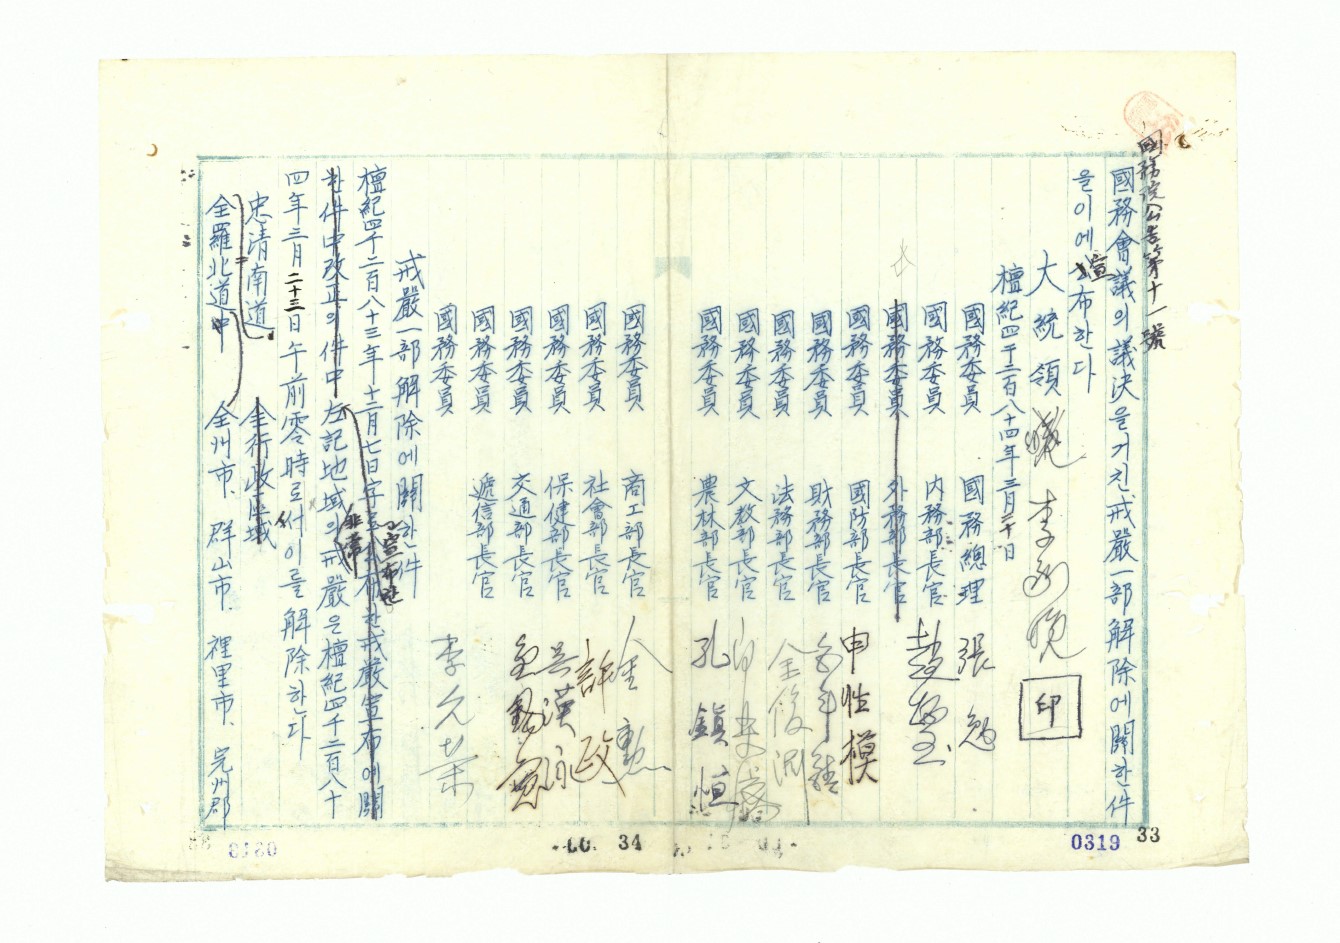 國務院公告第十一號
國務會議의議決을거친戒嚴一部解除에關한件
을이에宣布한다
大統領 李承晩 印
檀紀四千二百八十四年三月二十日
國務總理 張勉
國務委員 內務部長官 趙
國務委員 外務部長官
國務委員 國防部長官 申性模
國務委員 財務部長官
國務委員 法務部長官 金俊淵
國務委員 文敎部長官
國務委員 農林部長官 孔鎭恒
國務委員 商工部長官 金勳
國務委員 社會部長官 許政
國務委員 保健部長官 吳漢泳
國務委員 交通部長官
國務委員 遞信部長官
國務委員 李允榮
戒嚴一部解除에關한件
檀紀四千二百八十三年十二月七日字로宣布한 布한戒嚴宣布에關
한件中改正의件中左記地域의非常戒嚴은檀紀四千二百八十
四年三月二十三日午前零時로付이를解除한다
忠淸南道 全行政區域
全羅北道中 全州市、群山市、裡里市、完州郡
0319 33
34